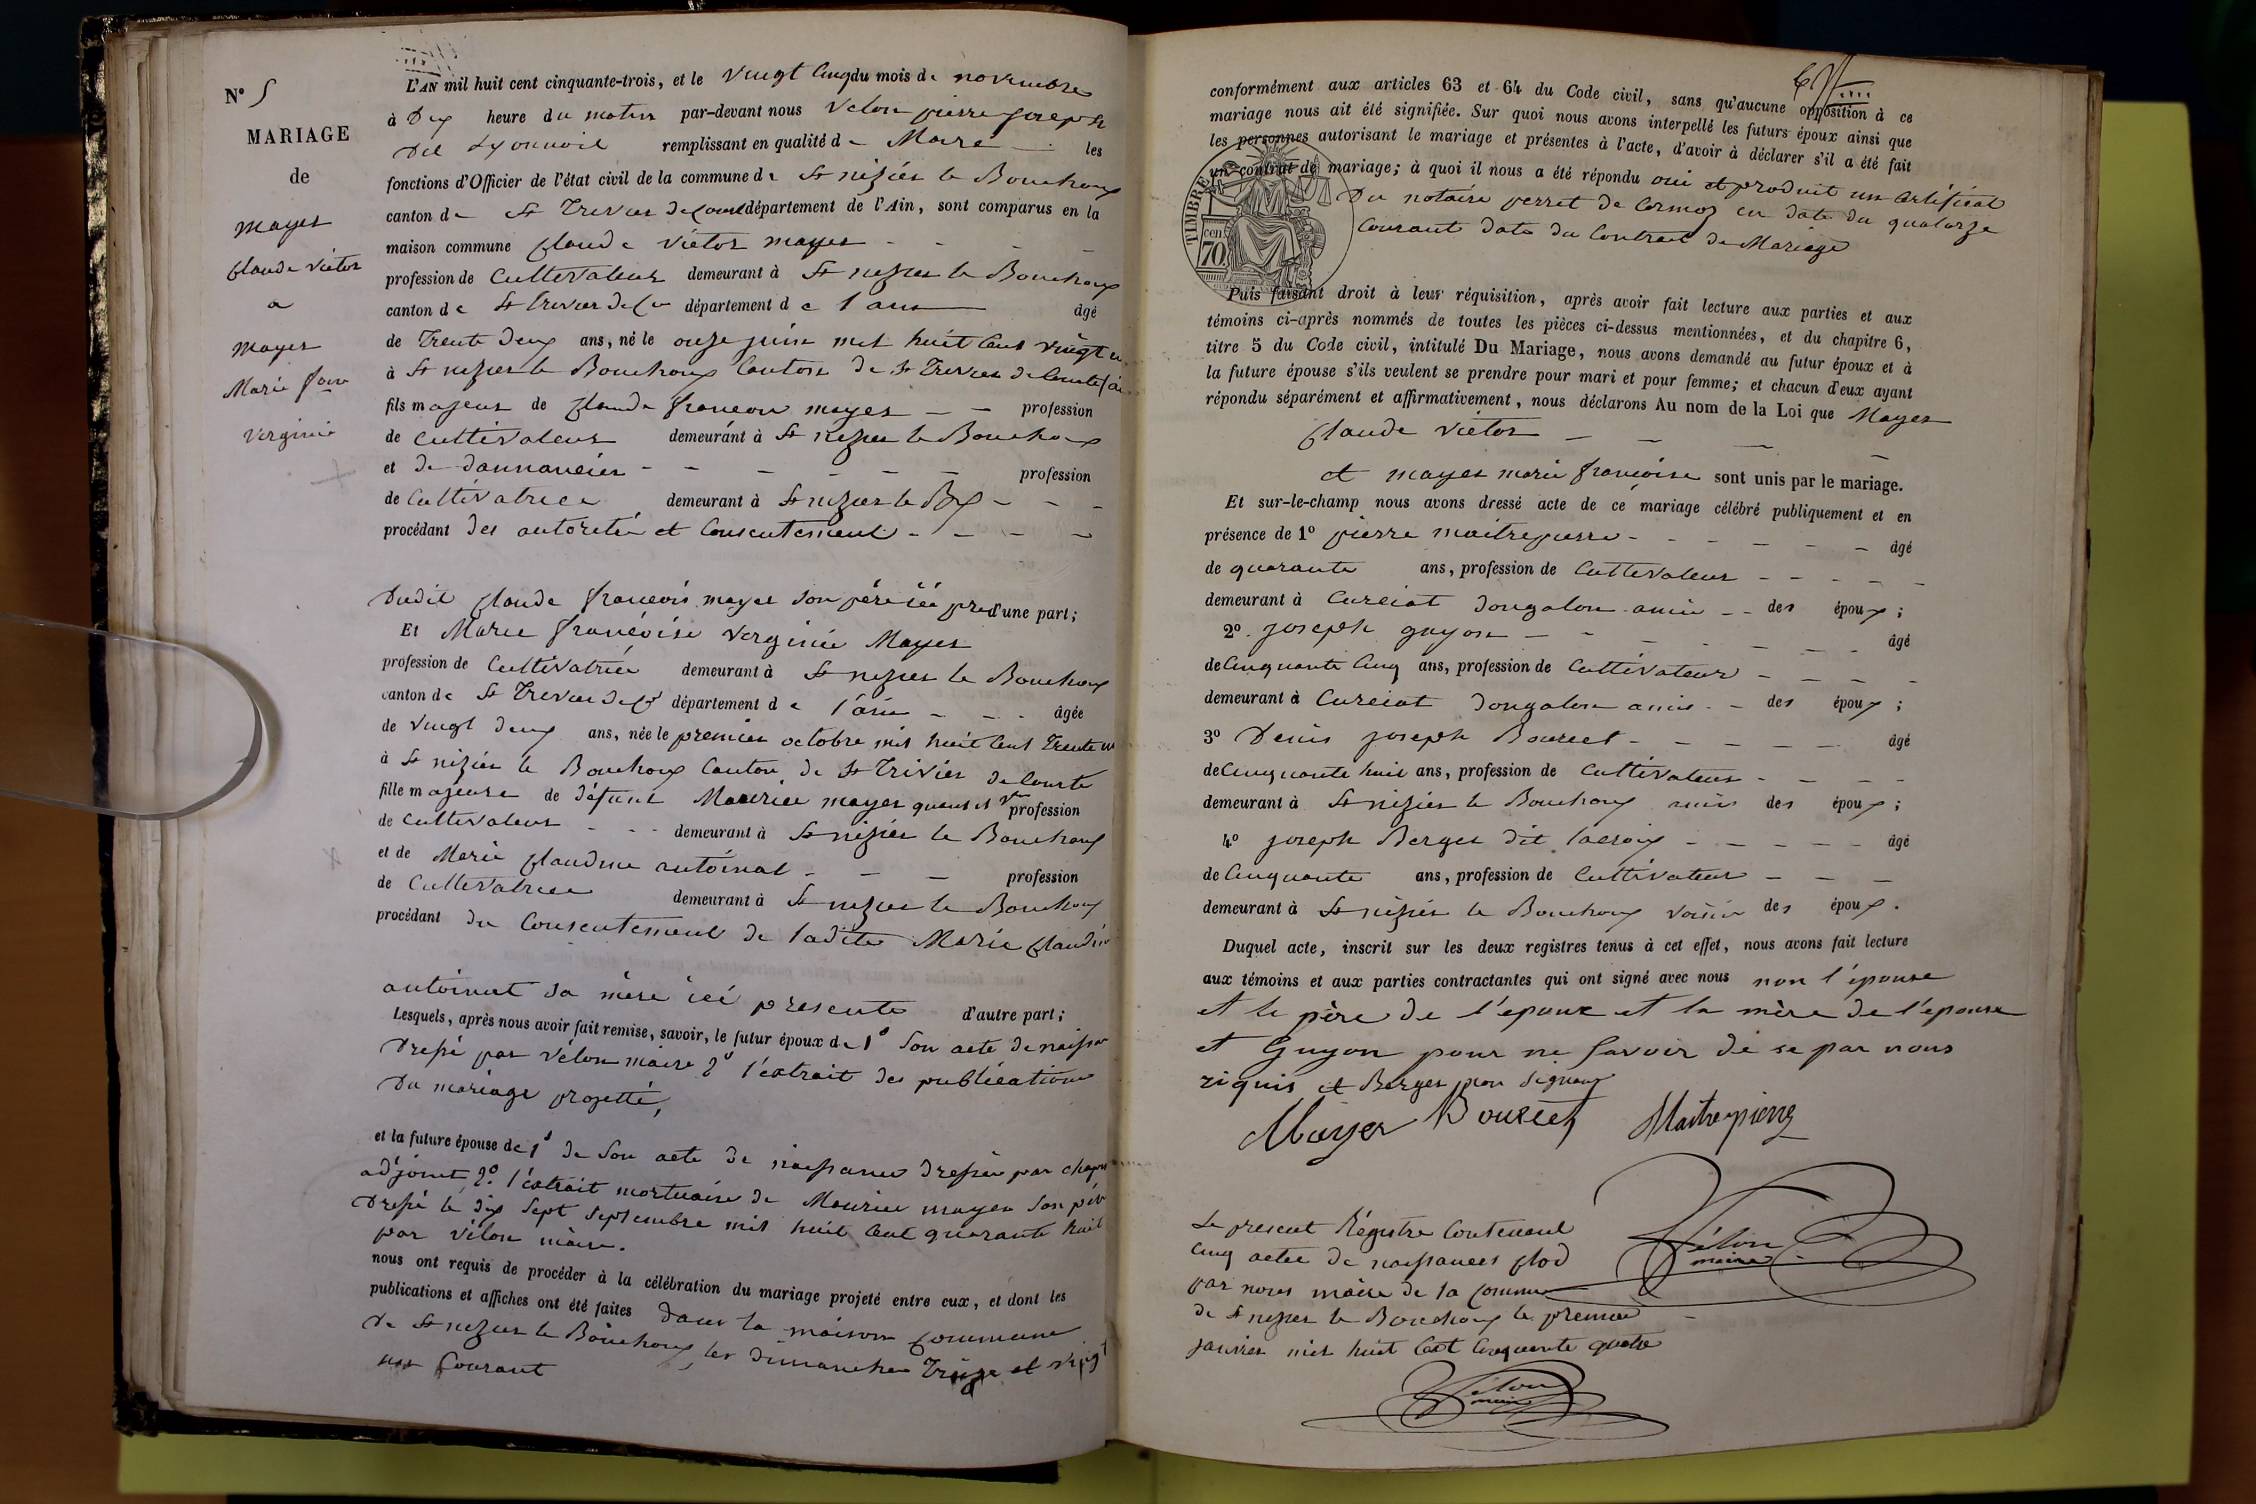 N° 5
MARIAGE
de
mayer
Claude victor
a
mayer
Marie f.oise
verginie
L'AN mil huit cent cinquante-trois, et le vingt cinq du mois de novembre
à Dix heure du matin par-devant nous velon pierre joseph
Dit Lyonnois remplissant en qualité de Maire les
fonctions d'Officier de l'état civil de la commune de St nizier le Bouchoux
canton de St Trivier de Court département de l'Ain, sont comparus en la
maison commune Claude victor mayer
profession de cultivateur demeurant à St nizier le Bouchoux
canton de St trivier de Cou département de l'ain âgé
de Trente deux ans, né le onze juin mil huit cent vingt un
à St nizier le Bouchoux canton de St Trivier de Courte (ain
fils majeur de Claude francois mayer profession
de cultivateur demeurant à St nizier le Bouchoux
et de profession
de Cultivatrice demeurant à St nizier le Bx
procédant des autorité et Consentement
Dudit Claude francois mayer son père ici pred d'une part;
Et Marie francoise verginie Mayer
profession de Cultivatrice demeurant à St nizier le Bouchoux
canton de St Trivier de Ct département de l'ain âgée
de vingt deux ans, née le premier octobre mil huit cent Trente un
à St nizier le Bouchoux Canton de St Trivier de Courte
fille majeure de défunt Maurice mayer quand vt profession
de Cultivateur demeurant à St nizier le Bouchoux
et de Marie Claudine antoinat profession
de Cultivatrice demeurant à St nizier le Bouchoux
procédant du Consentement de ladite Marie Claudine
antoinat sa mère ici presente d'autre part;
Lesquels, après nous avoir fait remise, savoir, le futur époux de 1° Son acte de naissan
Dressé par vélon maire 2° l'extrait des publications
Du mariage projetté,
et la future épouse de 1° de Son acte de naissance dressée par
adjoint, 2° l'extrait mortuaire de Maurice mayer son père
Dressé le dix sept septembre mil huit cent quarante huit
par vélon maire.
nous ont requis de procéder à la célébration du mariage projeté entre eux, et dont les
publications et affiches ont été faites dans la maison Commune
de St nizier le Bouchoux les dimanches Treize et vingt
Courant
conformément aux articles 63 et 64 du Code civil, sans qu'aucune opposition à ce
mariage nous ait été signifiée. Sur quoi nous avons interpellé les futurs époux ainsi que
les personnes autorisant le mariage et présentes à l'acte, d'avoir à déclarer s'il a été fait
un contrat de mariage; à quoi il nous a été répondu oui et produit un certificat
Du notaire perret de Cormoz en date du quatorze
Courant date du Contrat de Mariage
TIMBRE
cen
70
Puis faisant droit à leur réquisition, après avoir fait lecture aux parties et aux
témoins ci-après nommés de toutes les pièces ci-dessus mentionnées, et du chapitre 6,
titre 5 du Code civil, intitulé Du Mariage, nous avons demandé au futur époux et à
la future épouse s'ils veulent se prendre pour mari et pour femme; et chacun d'eux ayant
répondu séparément et affirmativement, nous déclarons Au nom de la Loi que Mayer
Claude victor
et mayer marie francoise sont unis par le mariage.
Et sur-le-champ nous avons dressé acte de ce mariage célébré publiquement et en
présence de 1° pierre maitrepierre âgé
de quarante ans, profession de Cultivateur
demeurant à Curciat Dongalon amie des époux;
2° joseph guyon âgé
de Cinquante Cinq ans, profession de Cultivateur
demeurant à Curciat Dongalon amie des époux;
3° Denis joseph Bourcet âgé
de Cinquante huit ans, profession de Cultivateur
demeurant à St nizier le Bouchoux amis des époux;
4° joseph Berger dit lacroix âgé
de Cinquante ans, profession de Cultivateur
demeurant à St nizier le Bouchoux voisin des époux.
Duquel acte, inscrit sur les deux registres tenus à cet effet, nous avons fait lecture
aux témoins et aux parties contractantes qui ont signé avec nous non l'épouse
et le père de l'époux et la mère de l'épouse
et Guyon pour ne savoir de se par nous
riquis et Berger
Mayer Bourcet Maitrepierre
Vélon
maire
Le present Régistre Contenant
Cinq actes de naissances Clod
par nous maire de la Commune
de St nizier le Bouchoux le premier
janvier mil huit Cent Cinquante quatre
Vélon
maire